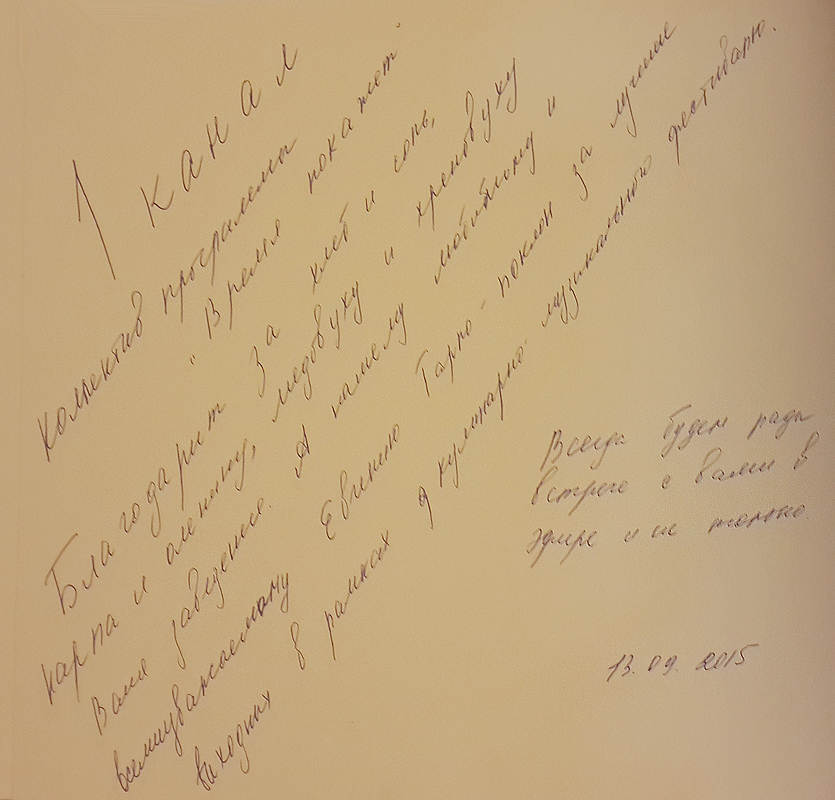 1 канал
Коллектив программы
"Время покажет"
Благодарит за хлеб и соль,
карпа и оленину, медовуху и хреновуху
Ваше заведение. А нашему любимому и
всеми уважаемому Евгению поклон за лучшие
выходных в рамках кулинарно-музыкального фестиваля.
Всегда будем рады
встрече с вами в
эфире и не только.
13.09.2015